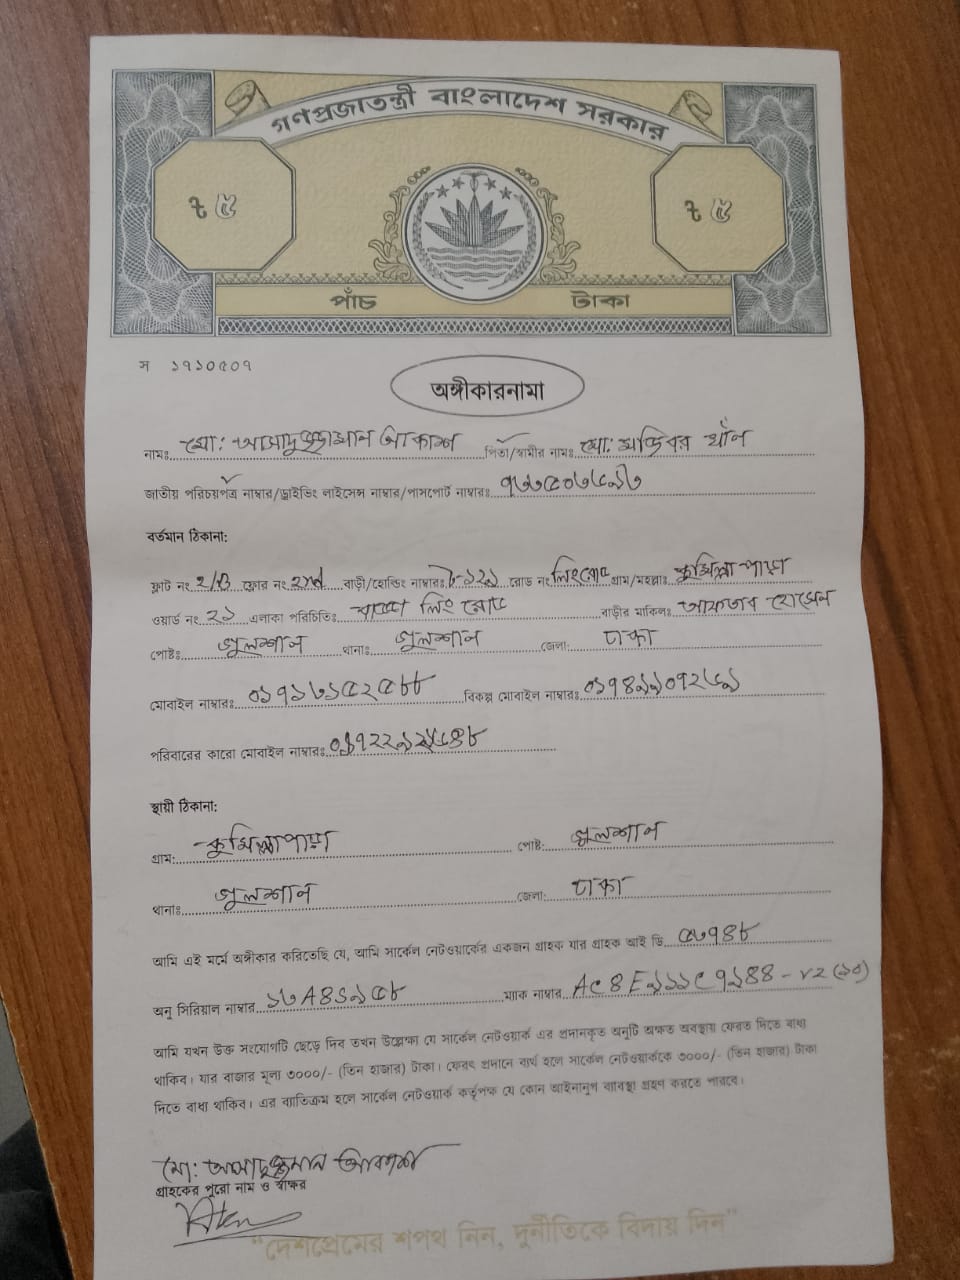 গণপ্রজাতন্ত্রী বাংলাদেশ সরকার
৳ ৫ ৳ ৫
পাঁচ টাকা
স ১৭১০৫০৭
অঙ্গীকারনামা
নামঃ মো: আসাদুজ্জামান আকাশ পিতা/স্বামীর নামঃ মো: মজিবর খাঁন
জাতীয় পরিচয়পত্র নাম্বার/ড্রাইভিং লাইসেন্স নাম্বার/পাসপোর্ট নাম্বারঃ
বর্তমান ঠিকানা:
ফ্লাট নং 2/B ফ্লোর নং 2nd বাড়ী/হোল্ডিং নাম্বারঃ ট-১২১ রোড নং লিংরোড গ্রাম/মহল্লাঃ কুমিল্লা পাড়া
ওয়ার্ড নং ২১ এলাকা পরিচিতিঃ লিং রোড বাড়ীর মালিকঃ আফতাব হোসেন
পোষ্টঃ গুলশান থানাঃ গুলশান জেলা: ঢাকা
মোবাইল নাম্বারঃ ০১৭১৬১৫২৫৮৮ বিকল্প মোবাইল নাম্বারঃ
পরিবারের কারো মোবাইল নাম্বারঃ
স্থায়ী ঠিকানা:
গ্রাম: কুমিল্লাপাড়া পোষ্ট: গুলশান
থানাঃ গুলশান জেলা: ঢাকা
আমি এই মর্মে অঙ্গীকার করিতেছি যে, আমি সার্কেল নেটওয়ার্কের একজন গ্রাহক যার গ্রাহক আই ডি ৫৬৭৪৮
অনু সিরিয়াল নাম্বার ম্যাক নাম্বার
আমি যখন উক্ত সংযোগটি ছেড়ে দিব তখন উল্লেক্ষ্য যে সার্কেল নেটওয়ার্ক এর প্রদানকৃত অনুটি অক্ষত অবস্থায় ফেরত দিতে বাধ্য
থাকিব। যার বাজার মূল্য ৩০০০/- (তিন হাজার) টাকা। ফেরৎ প্রদানে ব্যর্থ হলে সার্কেল নেটওয়ার্ককে ৩০০০/- (তিন হাজার) টাকা
দিতে বাধ্য থাকিব। এর ব্যতিক্রম হলে সার্কেল নেটওয়ার্ক কর্তৃপক্ষ যে কোন আইনানুগ ব্যাবস্থা গ্রহণ করতে পারবে।
মো: আসাদুজ্জামান আকাশ
গ্রাহকের পুরো নাম ও স্বাক্ষর
"দেশপ্রেমের শপথ নিন, দুর্নীতিকে বিদায় দিন"